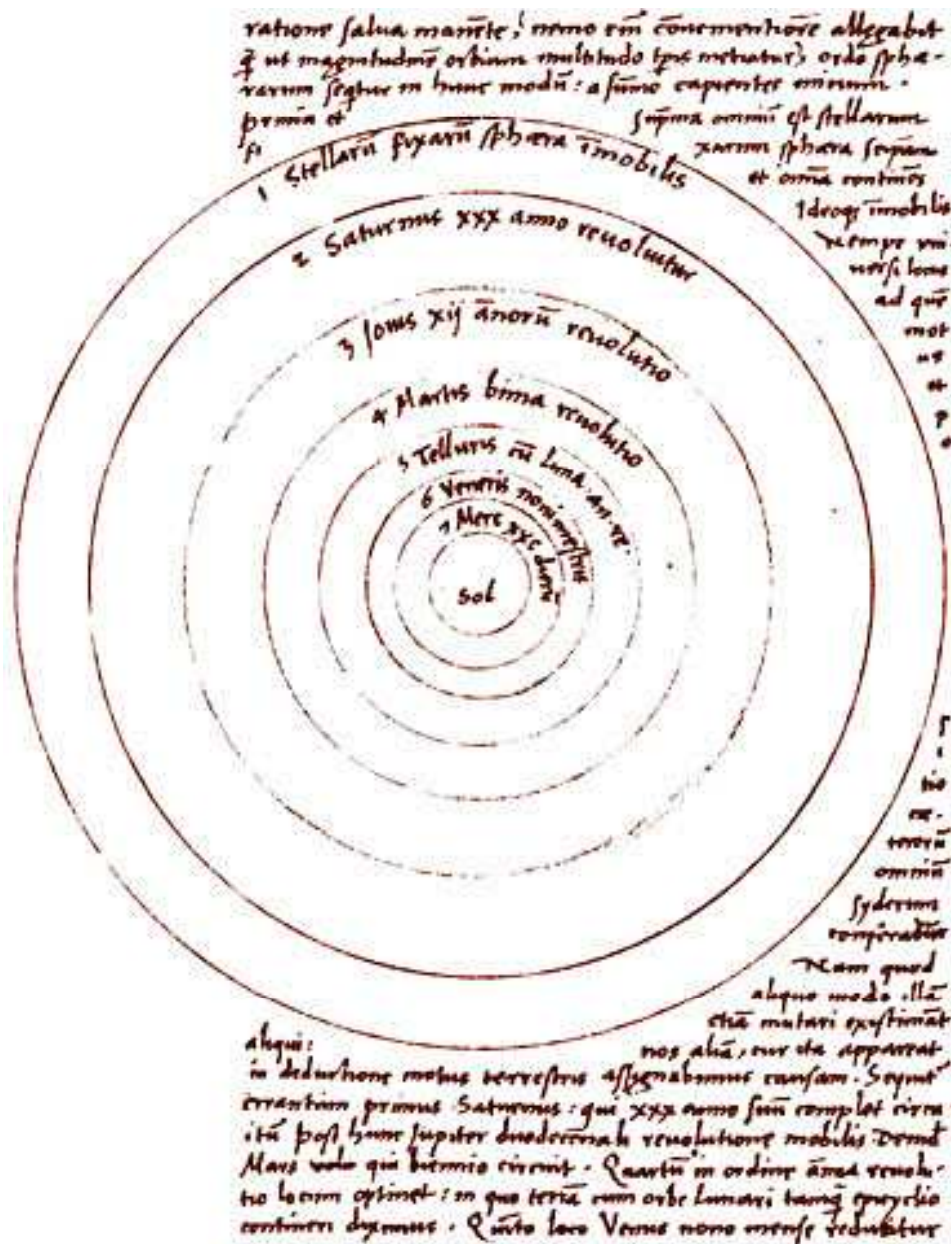 ratione salua manēte, nemo em̄ cōuenientiorē allegabit
q̄ ut magnitudinē orbium multitudo tp̄is metiatur, ordo sphæ-
rarum seq̄tur in hunc modū: a sūmo capientes initium.
prima et sup̄ma omniū est stellarum
fi xarum sphæra seip̄am
et om̄ia continēs
Ideoq̨ īmobilis
nempe vni
uersi locus
ad quē
mot
us
et
p
o
1 Stellarū fixarū sphæra īmobilis
2 Saturnus xxx anno reuoluitur
3 Jouis xij ānorū reuolutio
4 Martis bima reuolutio
5 Telluris cū Luna an. re.
6 Veneris nonimestris
7 Merc xxc dierū
Sol
s
i
tio
cæ-
terorū
omniū
syderum
conferatur
Nam quod
aliquo modo illā
etiā mutari existimāt
aliqui: nos aliā, cur ita appareat
in deductione motus terrestris assignabimus causam. Sequit
errantium primus Saturnus: qui xxx anno suū complet circu
itū post hunc Jupiter duodecennali reuolutione mobilis Deind
Mars qui biennio circuit. Quartū in ordine ānua reuolu-
tio locum optinet: in quo terrā cum orbe Lunari tamq̄ epicyclio
contineri diximus. Quīto loco Venus nono mense reducitur